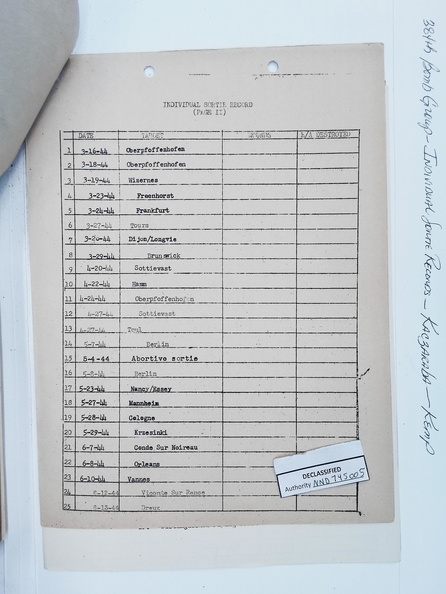 INDIVIDUAL SORTIE RECORD
(PAGE II)
DATE TARGET A/A DESTROYED
1 3-16-44 Oberpfoffenhofen
2 3-18-44 Oberpfoffenhofen
3 3-19-44 Wizernes
4 3-23-44
5 3-24-44 Frankfurt
6 3-27-44 Tours
7 3-28-44 Dijon/Longvie
8 3-29-44 Brunswick
9 4-20-44 Sottievast
10 4-22-44 Hamm
11 4-24-44 Oberpfoffenhofen
12 4-27-44 Sottevast
13 4-27-44 Toul
14 5-7-44 Berlin
15 5-4-44 Abortive sortie
16 5-8-44 Berlin
17 5-23-44 Nancy/Essey
18 5-27-44 Mannheim
19 5-28-44 Cologne
20 5-29-44 Krzesinki
21 6-7-44 Conde Sur Noireau
22 6-8-44 Orleans
23 6-10-44 Vannes
24 6-12-44 Sur
25 6-13-44 Dreux
DECLASSIFIED
Authority NND 745005
384th Bomb Group - Individual Sortie Records - - Kemp